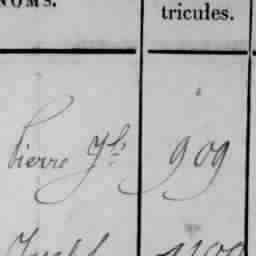 NOMS.
tricules.
Pierre Jh 909